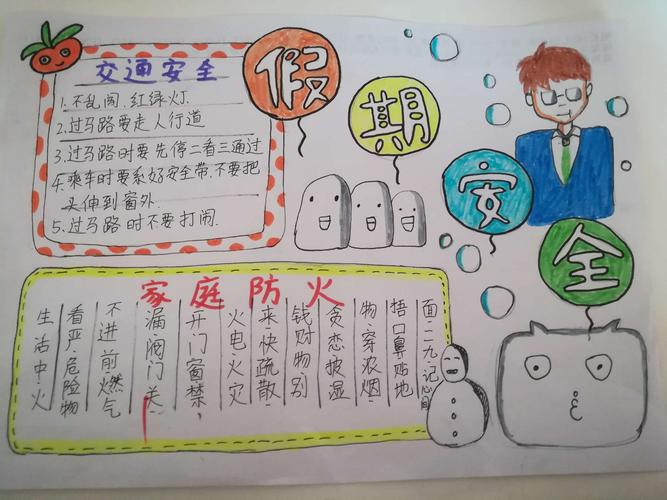 假期安全
交通安全
1.不乱闯.红绿灯.
2.过马路要走人行道
3.过马路时要先停二看三通过
4.乘车时要系好安全带,不要把
头伸到窗外.
5.过马路时不要打闹.
家庭防火
生活中·火
看严·危险物
不进前燃气
漏·阀门关·
开门窗禁,
火电火灾
来·快疏散·
钱财物别
贪恋·披湿
物·穿浓烟·
捂口鼻贴地
面·二九·记心间